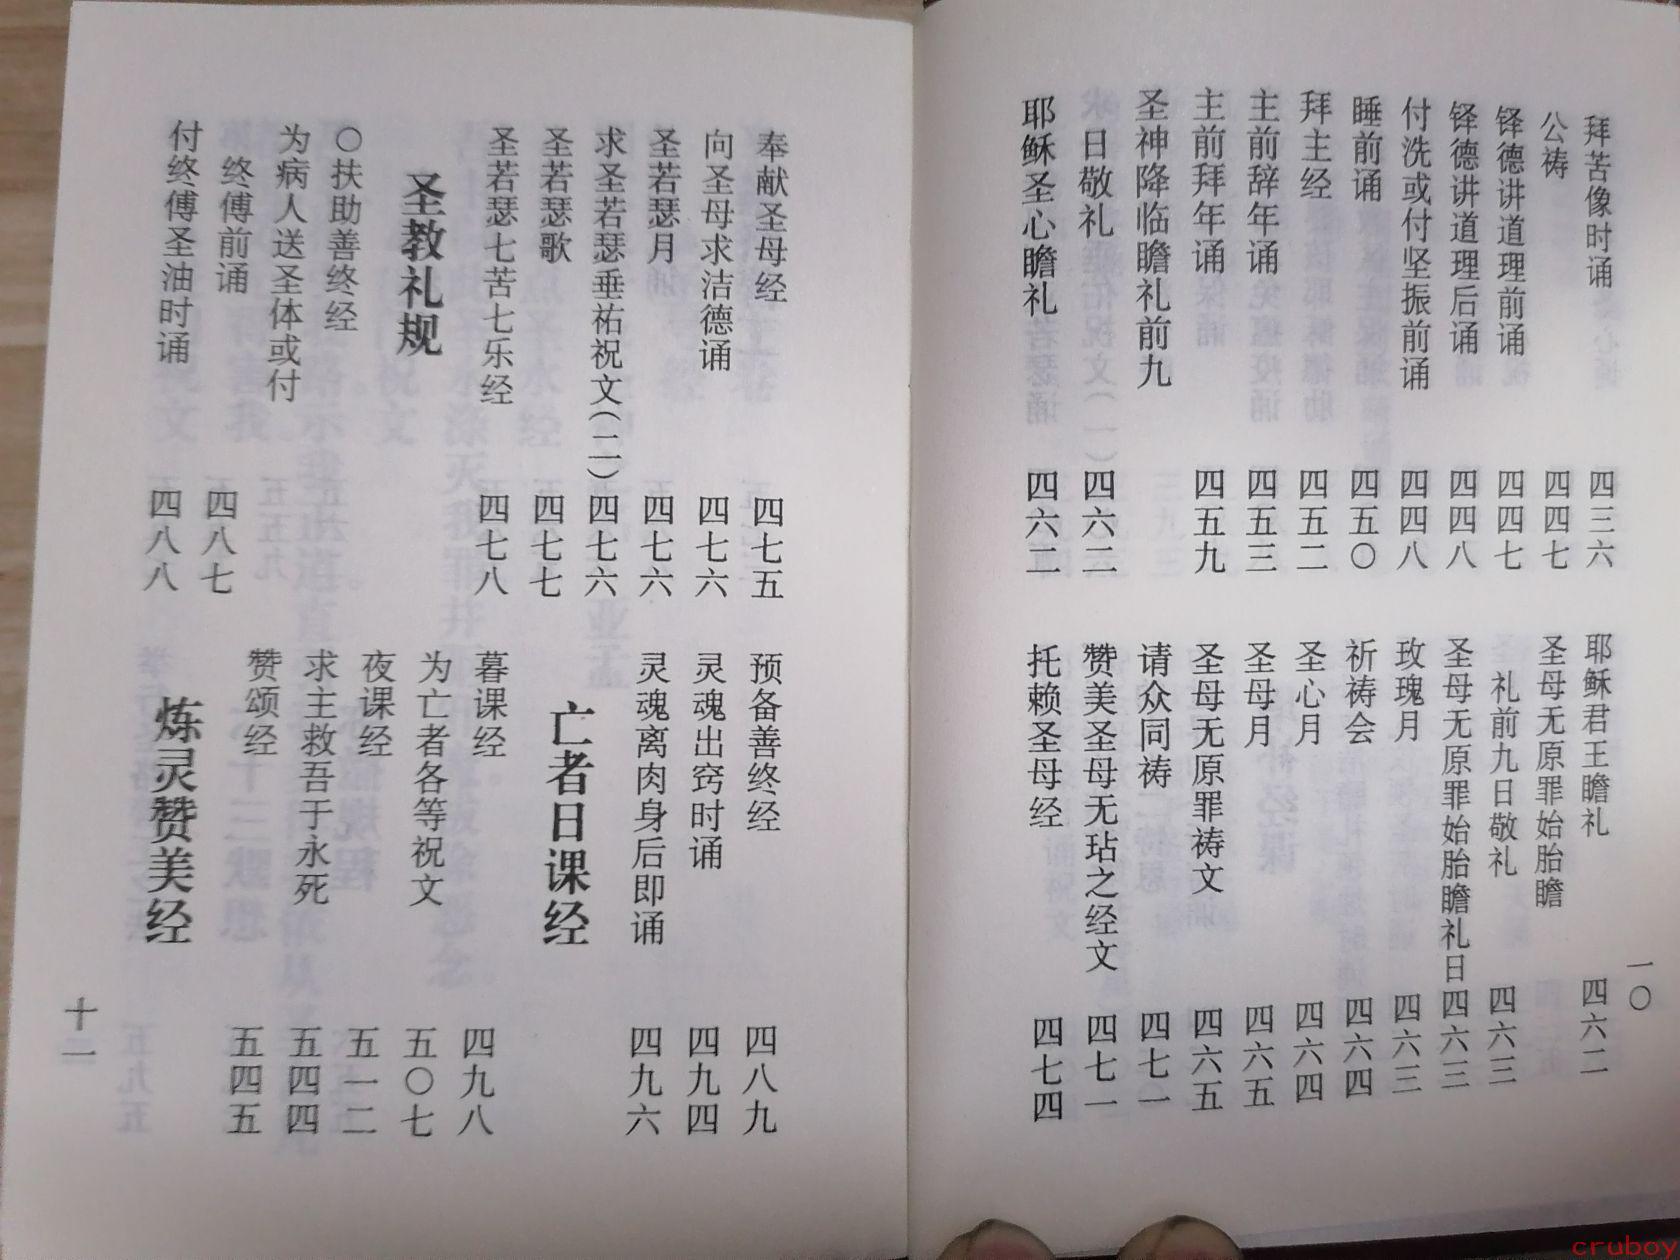 拜苦像时诵 四三六
公祷 四四七
铎德讲道理前诵 四四七
铎德讲道理后诵 四四八
付洗或付坚振前诵 四四八
睡前诵 四五〇
拜主经 四五二
主前辞年诵 四五三
主前拜年诵 四五九
圣神降临瞻礼前九
日敬礼 四六二
耶稣圣心瞻礼 四六二
耶稣君王瞻礼 四六二
圣母无原罪始胎瞻
礼前九日敬礼 四六三
圣母无原罪始胎瞻礼日 四六三
玫瑰月 四六三
祈祷会 四六四
圣心月 四六四
圣母月 四六五
圣母无原罪祷文 四六五
请众同祷 四七一
赞美圣母无玷之经文 四七一
托赖圣母经 四七四
一〇
奉献圣母经 四七五
向圣母求洁德诵 四七六
圣若瑟月 四七六
求圣若瑟垂祐祝文(二) 四七六
圣若瑟歌 四七七
圣若瑟七苦七乐经 四七八
圣教礼规
〇扶助善终经
为病人送圣体或付
终傅前诵 四八七
付终傅圣油时诵 四八八
预备善终经 四八九
灵魂出窍时诵 四九四
灵魂离肉身后即诵 四九六
亡者日课经
暮课经 四九八
为亡者各等祝文 五〇七
夜课经 五一二
求主救吾于永死 五四四
赞颂经 五四五
炼灵赞美经
十一
cruboy